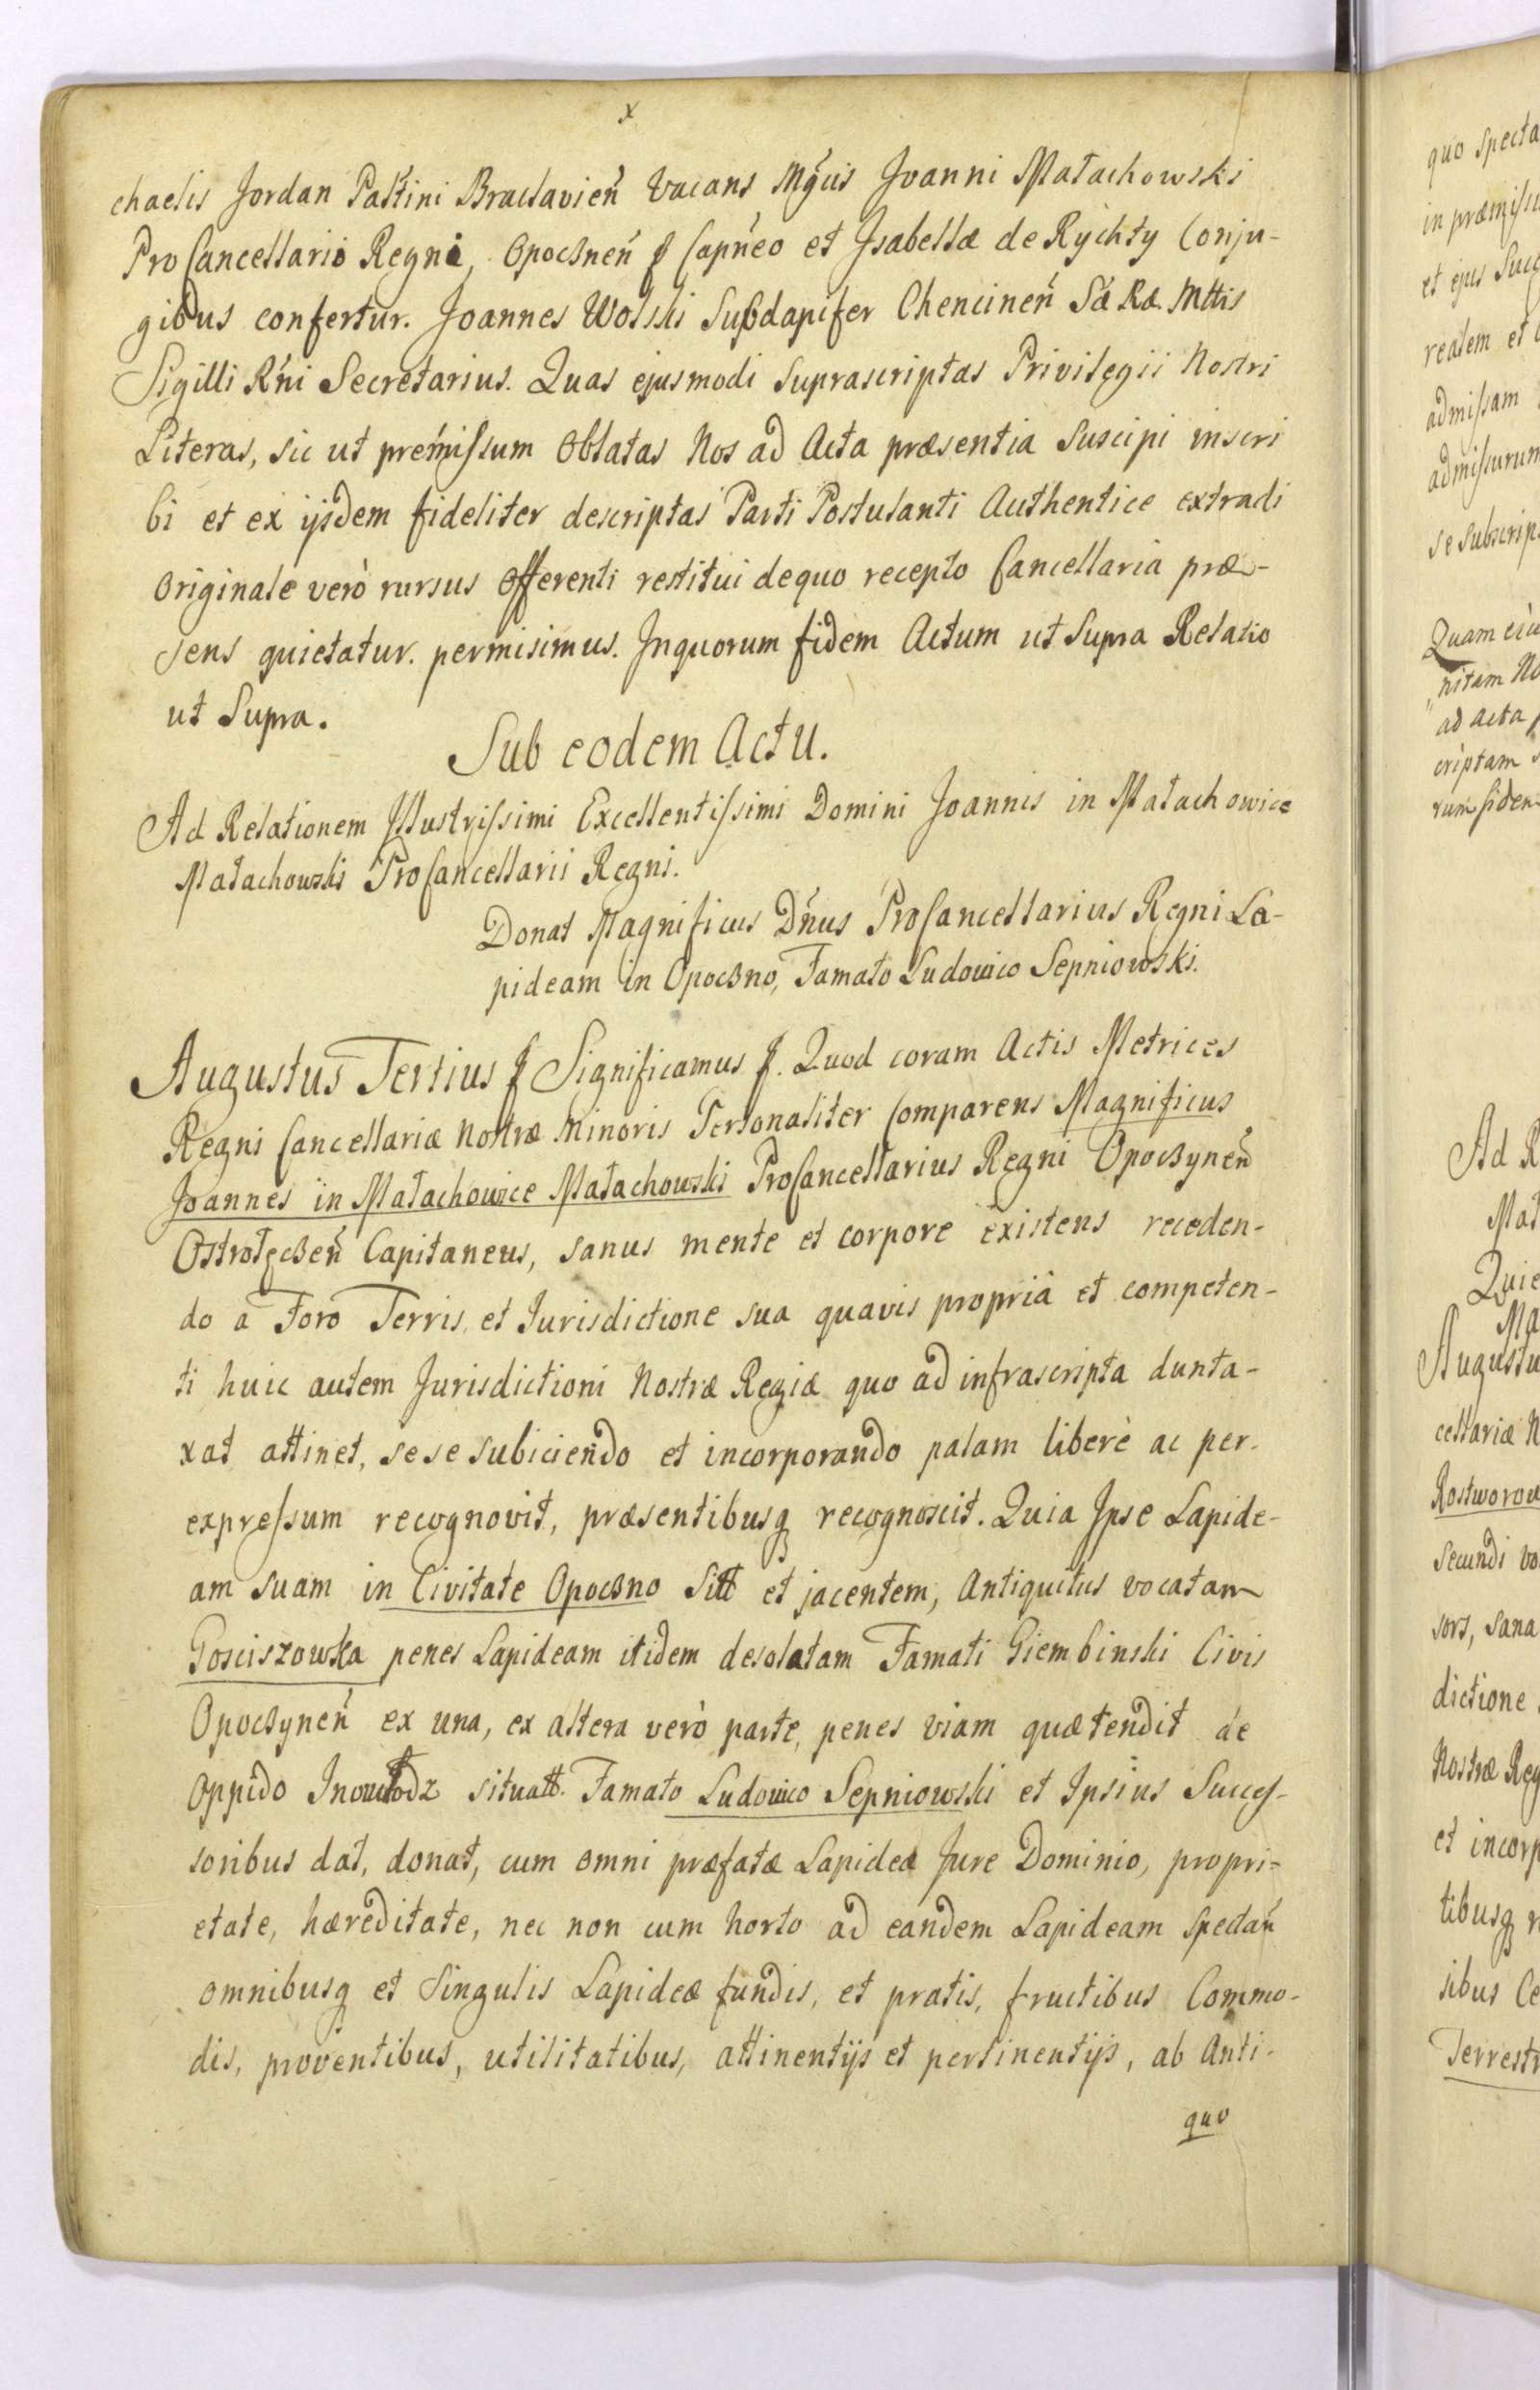 x
chaelis Jordan Pałtini Bractavień vacans Mgcis Joanni Małachowski
ProCancellario Regni, Opocznen̄ & Capn̄eo et Isabellæ de Rychty Conju-
gibus confertur. Joannes Wolski Subdapifer Chencinen̄ Sæ Ræ. Mttis
Sigilli Rn̄i Secretarius. Quas ejusmodi Suprascriptas Privilegii Nostri
Literas, sic ut præmissum Oblatas Nos ad Acta præsentia Suscipi inscri
bi et ex ijsdem fideliter descriptas Parti Postulanti Authentice extradi
Originale verò rursus Offerenti restitui dequo recepto Cancellaria præ-
sens quietatur. permisimus. Inquorum fidem Actum ut Supra Relatio
ut Supra.
Sub eodem Actu.
Ad Relationem Illustrissimi Excellentissimi Domini Joannis in Małachowice
Małachowski ProCancellarii Regni.
Donat Magnificus Dn̄us ProCancellarius Regni La-
pideam in Opoczno, Famato Ludovico Sepniowski.
Augustus Tertius & Significamus &. Quod coram Actis Metrices
Regni Cancellariæ Nostræ Minoris Personaliter Comparens Magnificus
Joannes in Małachowice Małachowski ProCancellarius Regni Opoczynen̄
Ostrołęczen̄ Capitaneus, sanus mente et corpore existens receden-
do a Foro Terris, et Jurisdictione sua quavis propriâ et competen-
ti huic autem Jurisdictioni Nostræ Regiæ quo ad infrascripta dunta-
xat attinet, sese subiciendo et incorporando palam liberè ac per-
expressum recognovit, præsentibusq recognoscit. Quia Ipse Lapide-
am suam in Civitate Opoczno Sitt et jacentem, Antiquitus vocatam
Gosciszowska penes Lapideam itidem desolatam Famati Giembinski Civis
Opoczynen̄ ex una, ex altera verò parte, penes viam quæ tendit de
Oppido Inowłodz situatt. Famato Ludovico Sepniowski et Ipsius Succes-
soribus dat, donat, cum omni præfatæ Lapideæ Jure Dominio, propri-
etate, hæreditate, nec non cum horto ad eandem Lapideam spectan̄
omnibusq et Singulis Lapideæ fundis, et pratis, fructibus Commo-
dis, proventibus, utilitatibus, attinentijs et pertinentijs, ab Anti-
quo
quo specta
in præmissu
et ejus Succ
realem et
admissam
admissurum
se subscrip
Quam eiu
nitam No
ad acta
criptam
rum fidem
Ad R
Mał
Quie
Ma
Augustu
cellariæ N
Rostworow
Secundi vo
sors, sana
dictione
Nostræ Reg
et incorp
tibusq r
sibus Ce
Terrestr